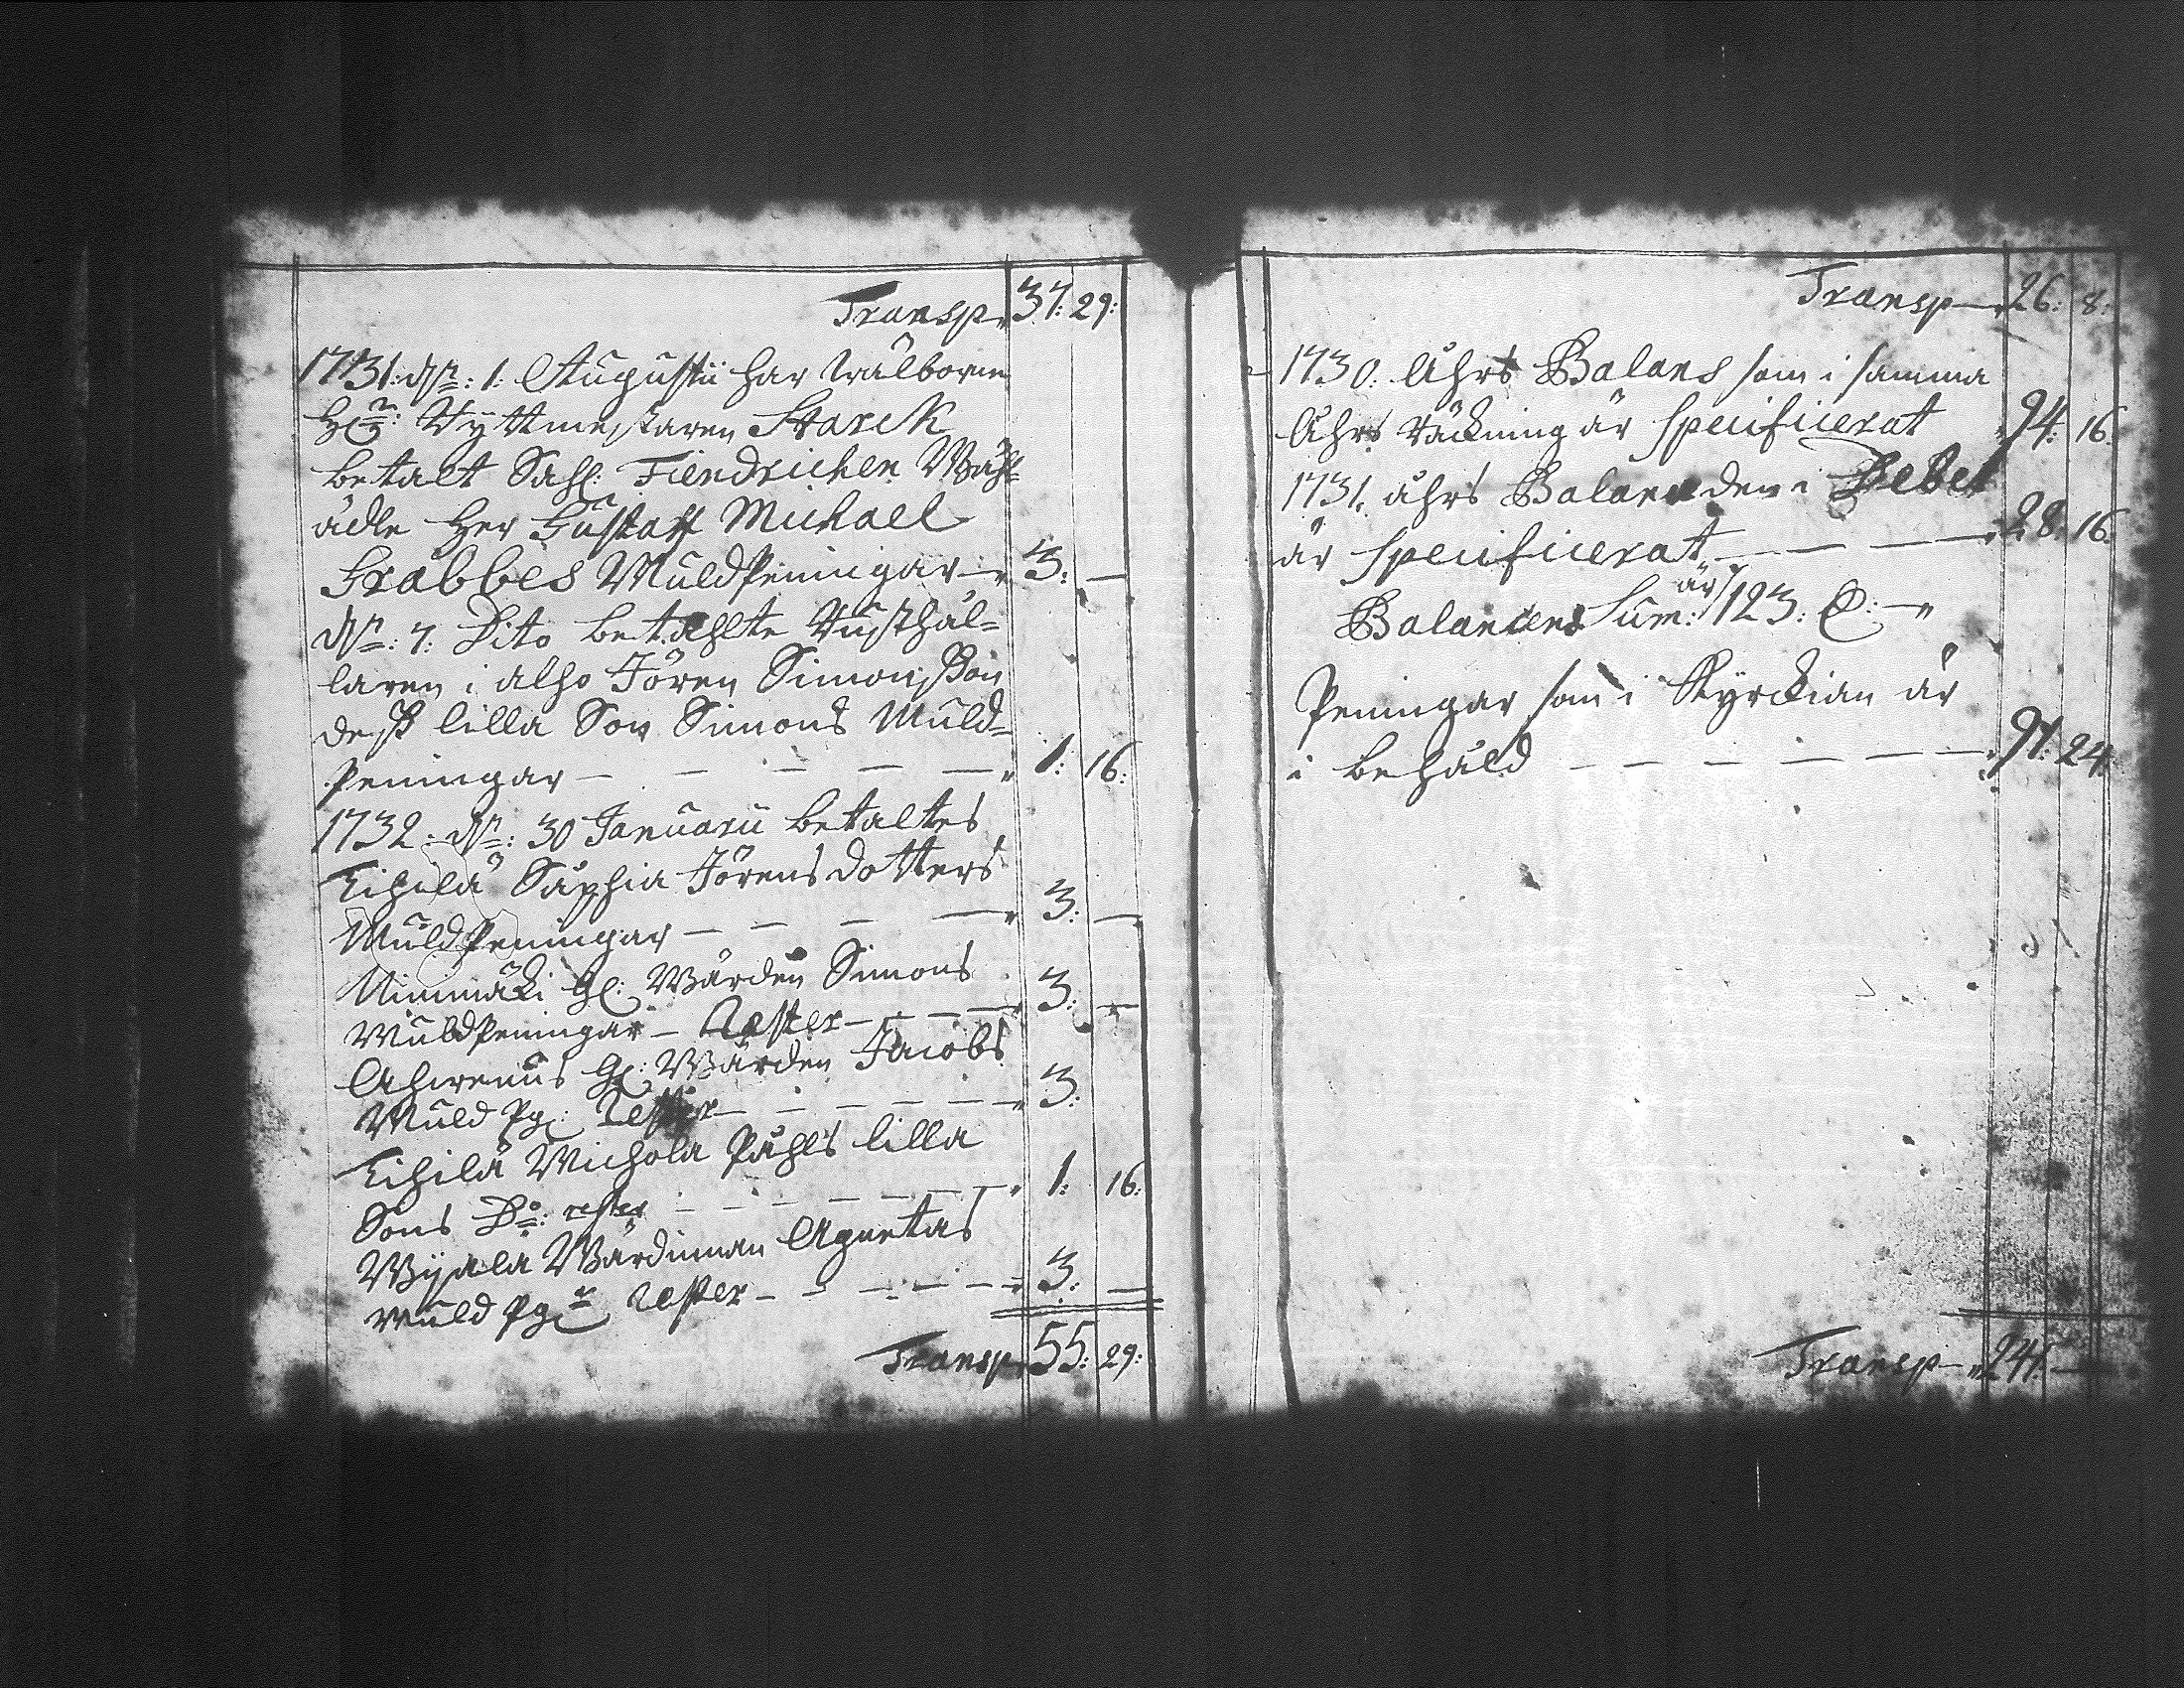 Transp 37: 29:
1731: dn: 1: Augustii har wälborne
H:r Ryttmestaren Starck
betalt Sahl: Fiendrichen Wähl
ädle Her Gustaff Michael
Grabbes MuldPeningar — 3: —
dn: 7: Dito betahlte Rusthål=
laren i alho Jören Simonsson
dess lilla Son Simons Muld=
Peningar — — — — — 1: 16:
1732: dn: 30 Januarii betaltes
Kihilä Sophia Jörens dotters
MuldPeningar — — — — 3: —
Nimmäki gl: Wärden Simons
MuldPeningar — Rester — — — 3: —
Ahrenius gl: Wärden Jacobs
Muld Pg: Rester — — — — 3:
Kihilä Michola Påhls lilla
Sons Do: rester — — — — 1: 16:
Wijala Wärdinnan Agnetas
Muld Pg:r Rester — — — — 3: —
Transp 55: 29:
Transp — 26: 8:
1730. Åhrs Balans som i samma
Åhrs räckning är Specificerat 94: 16
1731. åhrs Balans den i Debet
är Specificerat — — — 28: 16
Balancens Sum: är 123: —
Peningar som i Kyrckian är
i behåld — — — — — 91: 24
Transp — 241: —